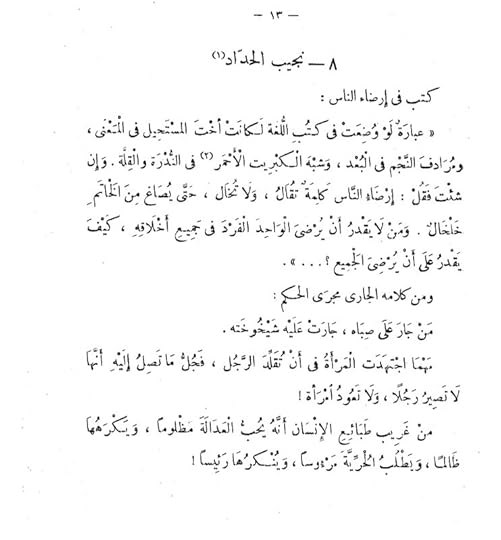 — ١٣ —
٨ — نجيب الحدّاد (١)
كتب فى إرضاء الناس :
« عبارَةٌ لَوْ وُضِعَتْ فى كتُبِ اللُّغة لَكانَتْ أختَ المُسْتَحيل فى المَعْنَى ،
ومُرَادفَ النَّجْم فى البُعْد ، وشبْهَ الْكبْريت الأَحْمَر (٢) فى النُّدْرَة والقِلَّة . وَإن
شئْتَ فَقُلْ : إرْضَاءُ النَّاس كلمَةٌ تُقَالُ ، وَلَا تُخَال ، حَتَّى يُصَاغَ مِنَ الْخَاتم
خَلْخَالٌ . وَمَنْ لَا يَقْدرُ أنْ يُرْضىَ الْوَاحِدَ الْفَرْدَ فى جَميع أَخْلَاقهِ ، كَيْفَ
يَقْدرُ عَلَى أَنْ يُرْضىَ الْجَميعَ ؟ . . . » .
ومن كلامه الجارى مجرى الحكم :
مَنْ جارَ عَلَى صِبَاه ، جَارَتْ عَلَيْه شَيْخُوخَته .
مَهْمَا اجْتهَدَت الْمَرْأَةُ فى أَنْ تُقَلِّدَ الرَّجُل ، فَجُلُّ مَا تَصِلُ إلَيْهِ أنَّهَا
لَا تَصِيرُ رَجُلًا ، وَلَا تَعُودُ امْرَأة !
منْ غَريب طَبَائع الإنْسَان أنَّهُ يُحبُّ الْعَدَالَةَ مَظْلوماً ، وَيَكْرَهُهَا
ظَالمًا ، وَيَطْلُبُ الْحُرِّيَّةَ مَرْءوساً ، وَيُنْكرُهَا رَئِيساً !